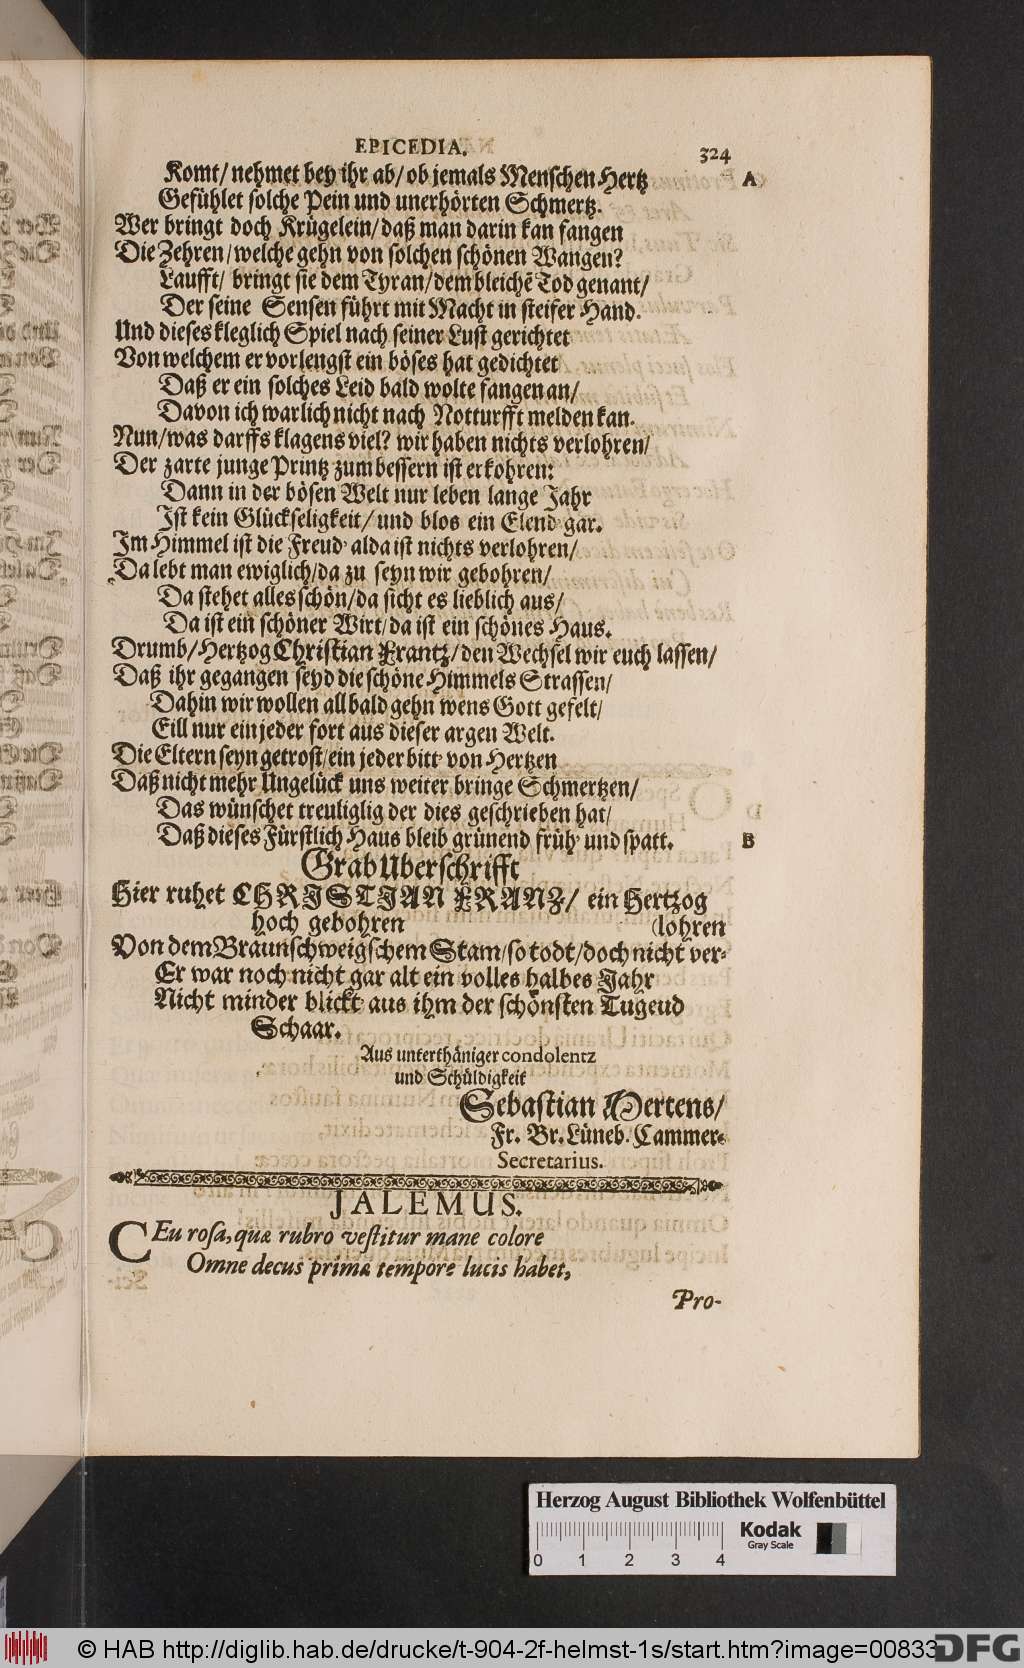 EPICEDIA.
324
Komt/ nehmet bey ihr ab/ ob jemals Menschen Hertz
A
Gefühlet solche Pein und unerhörten Schmertz.
Wer bringt doch Krügelein/ daß man darin kan fangen
Die Zehren/ welche gehn von solchen schönen Wangen?
Laufft/ bringt sie dem Tyran/ dem bleichẽ Tod genant/
Der seine Sensen führt mit Macht in steifer Hand.
Und dieses kleglich Spiel nach seiner Lust gerichtet
Von welchem er vorlengst ein böses hat gedichtet
Daß er ein solches Leid bald wolte fangen an/
Davon ich warlich nicht nach Notturfft melden kan.
Nun/ was darffs klagens viel? wir haben nichts verlohren/
Der zarte junge Printz zum bessern ist erkohren:
Dann in der bösen Welt nur leben lange Jahr
Ist kein Glückseligkeit/ und blos ein Elend gar.
Im Himmel ist die Freud' alda ist nichts verlohren/
Da lebt man ewiglich/ da zu seyn wir gebohren/
Da stehet alles schön/ da sicht es lieblich aus/
Da ist ein schöner Wirt/ da ist ein schönes Haus.
Drumb/ Hertzog Christian Frantz/ den Wechsel wir euch lassen/
Daß ihr gegangen seyd die schöne Himmels Strassen/
Dahin wir wollen all bald gehn wens Gott gefelt/
Eill nur ein jeder fort aus dieser argen Welt.
Die Eltern seyn getrost/ ein jeder bitt' von Hertzen
Daß nicht mehr Ungelück uns weiter bringe Schmertzen/
Das wünschet treuliglig der dies geschrieben hat/
Daß dieses Fürstlich Haus bleib grünend früh' und spatt.
B
Grab Uberschrifft
Hier ruhet CHRISTIAN FRANZ/ ein Hertzog
hoch gebohren
(lohren
Von dem Braunschweigschem Stam/ so todt/ doch nicht ver-
Er war noch nicht gar alt ein volles halbes Jahr
Nicht minder blickt' aus ihm der schönsten Tugeud
Schaar.
Aus unterthäniger condolentz
und Schüldigkeit
Sebastian Mertens/
Fr. Br. Lüneb. Cammer-
Secretarius.
JALEMUS.
CEu rosa, quæ rubro vestitur mane colore
Omne decus primæ tempore lucis habet,
Pro-
Herzog August Bibliothek Wolfenbüttel
Kodak
Gray Scale
0 1 2 3 4
© HAB http://diglib.hab.de/drucke/t-904-2f-helmst-1s/start.htm?image=00833
DFG